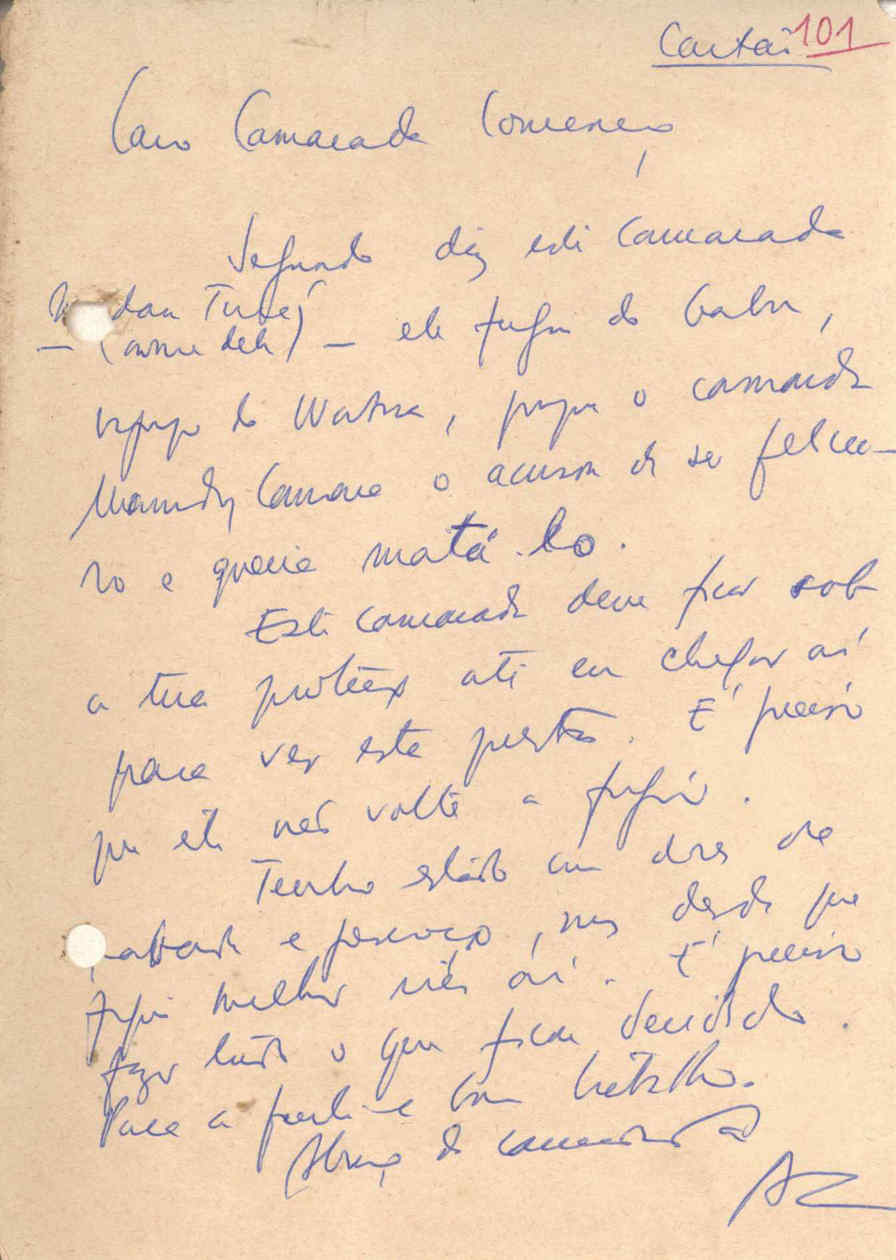 Cartas 101
Caro Camarada Lourenço,
Segundo diz este camarada
dan Turé
— (nome dele) — ele fugiu do Gabu,
do, porque o camarada
Mamadu Camara o acusou de ser feiticei-
ro e queria matá-lo.
Este camarada deve ficar sob
a tua proteção até eu chegar aí
para ver esta questão. É preciso
que ele não volte a fugir.
Tenho estado com dores de
cabeça e pescoço, mas desde que
fique melhor irei aí. É preciso
fazer tudo o que ficou decidido.
Para a frente e bom trabalho.
Abraço do camarada